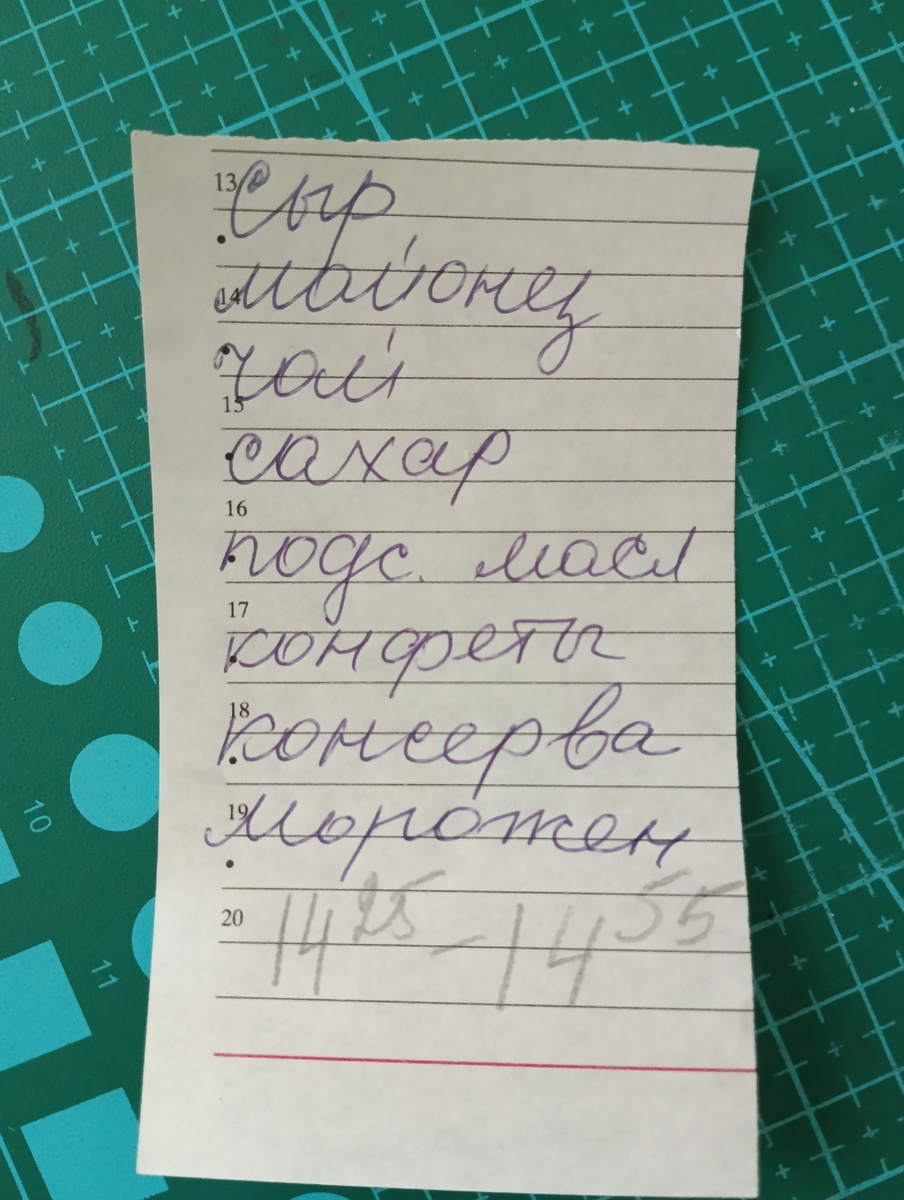 13 Сыр
14 майонец
чай
15
сахар
16
подс. масл
17
конфеты
18
консерва
19 морожен
20 14 25 - 14 55
10
11